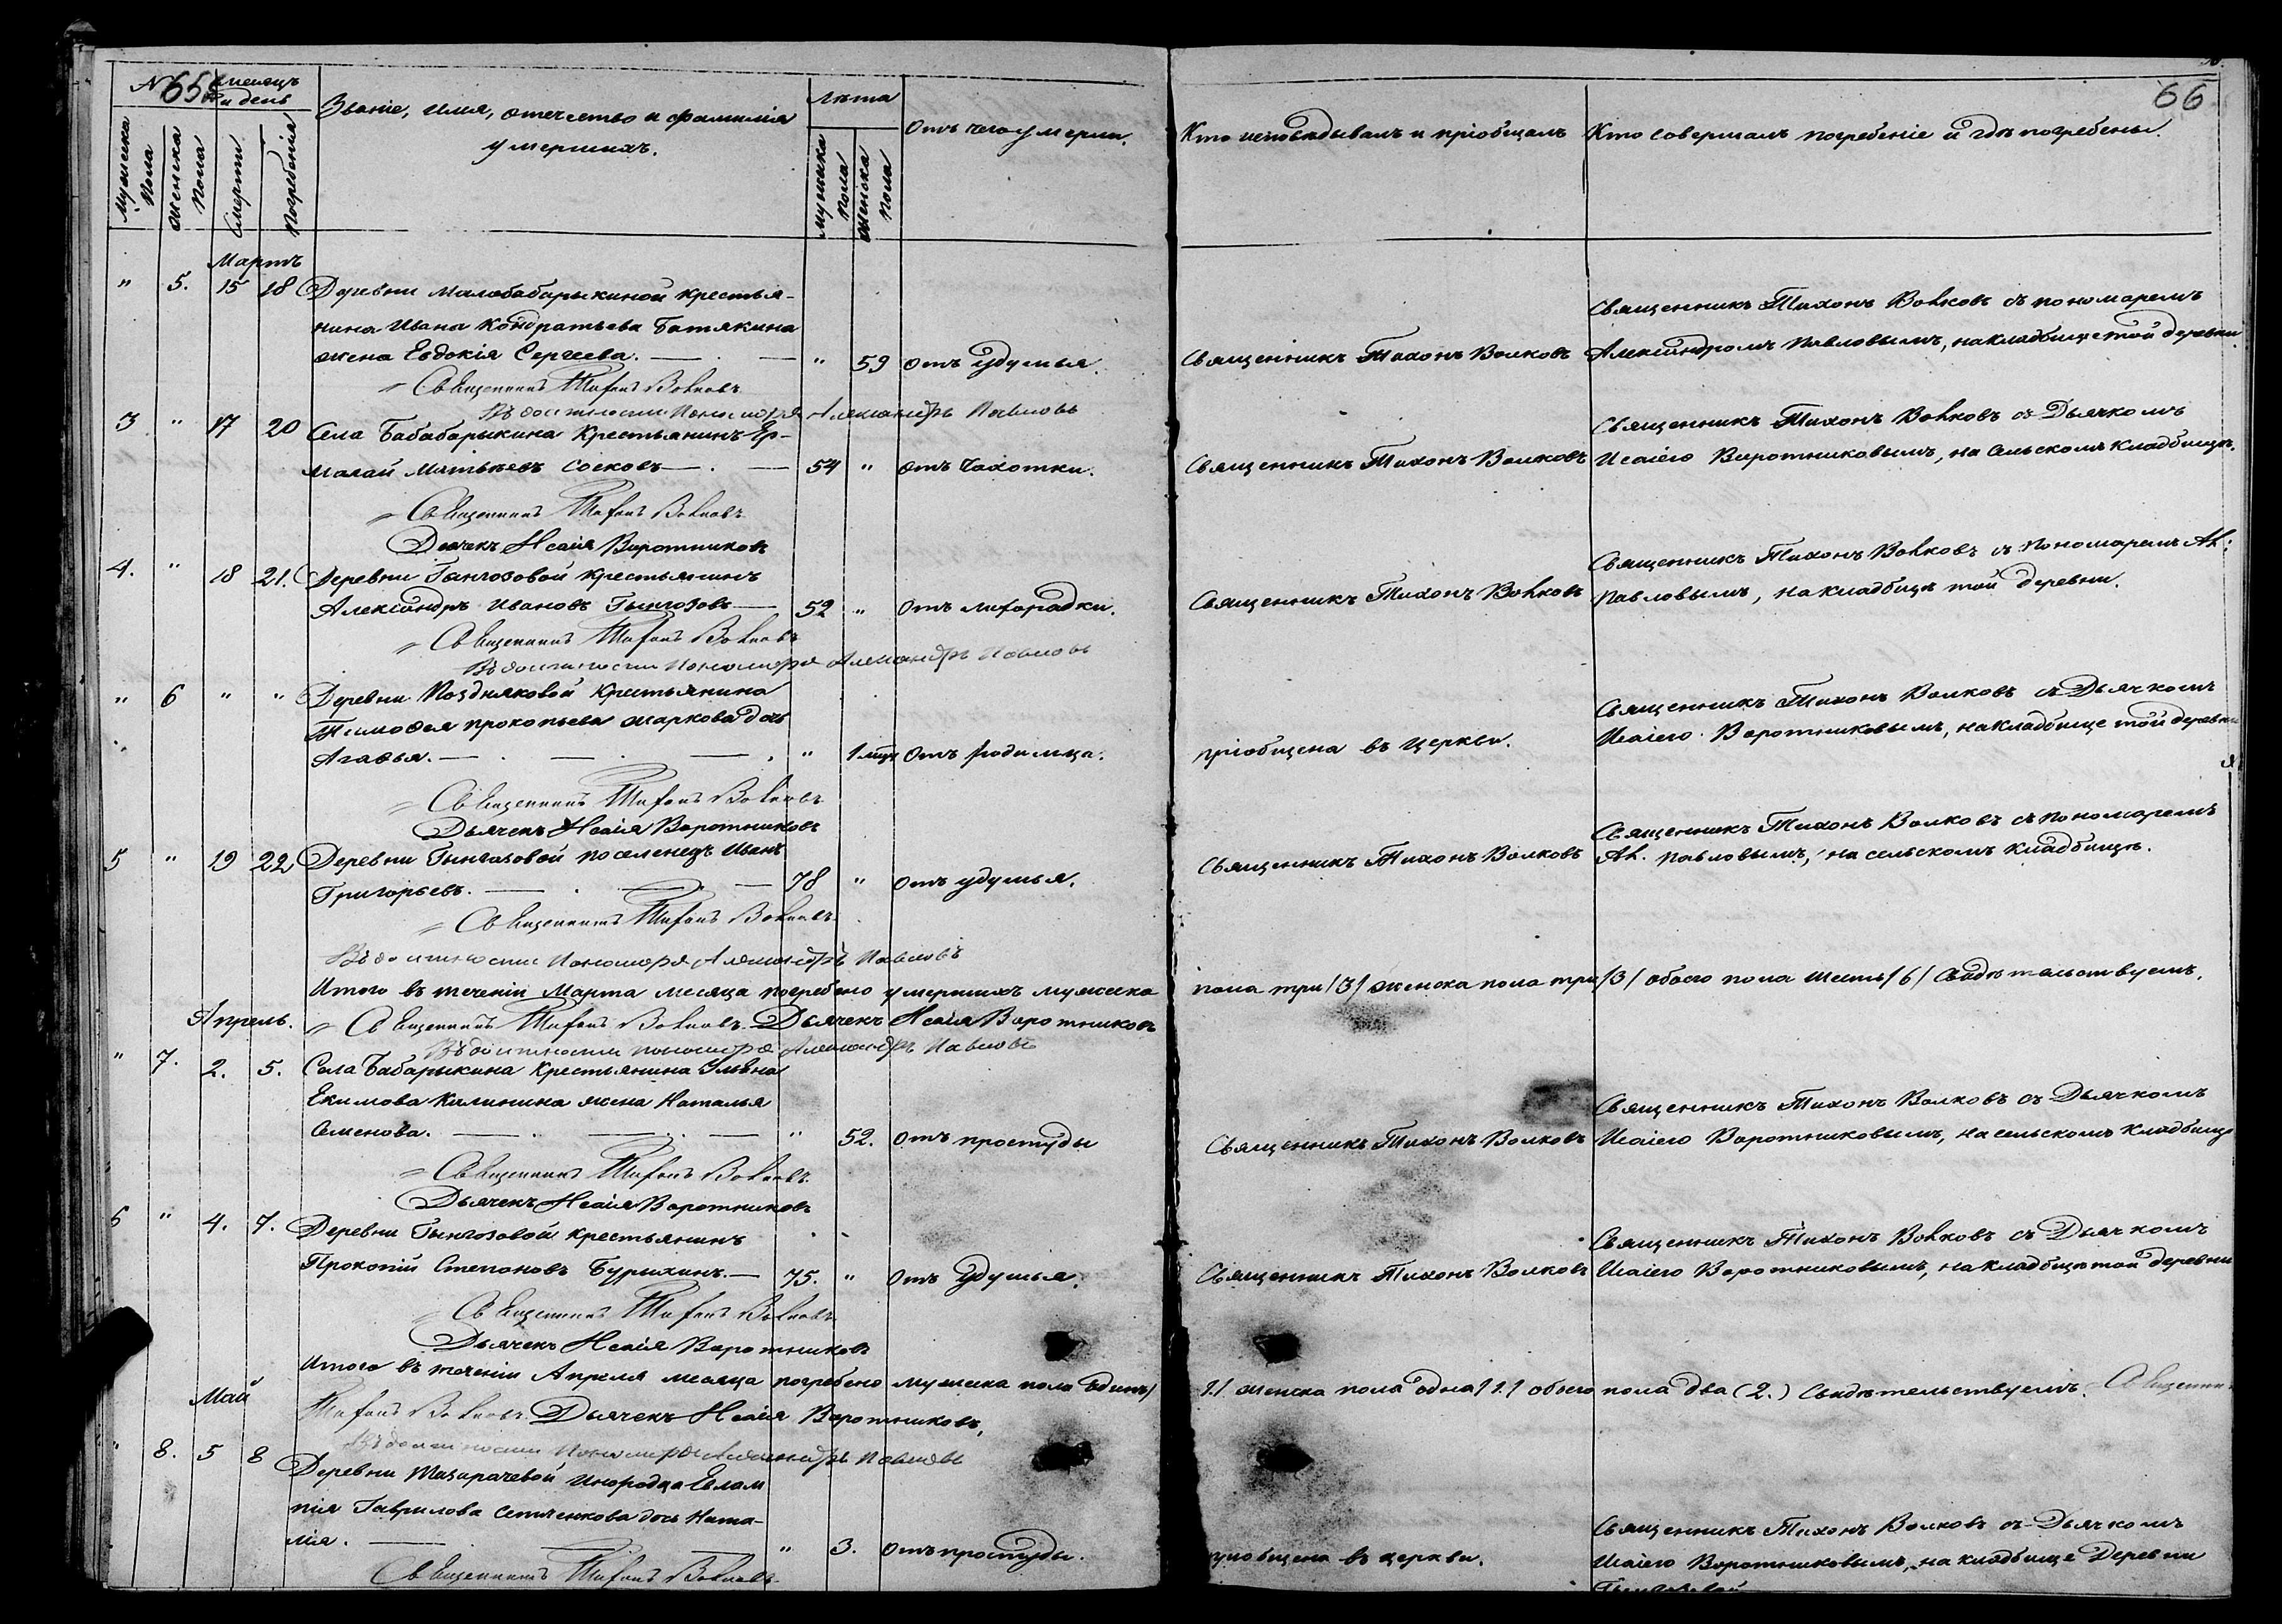 №
65
Месецъ
и день
Званіе, имя, отечество и фамилія
умершихъ.
Лѣта
Отъ чего умерли.
Мужеска
пола
Женска
пола
Смерти
Погребенія
Мужеска
пола
Женска
пола
66
Кто исповѣдывалъ и пріобщалъ
Кто совершалъ погребеніе и гдѣ погребены.
Мартъ
" 5. 15 18 Деревни Малобабарыкиной крестья-
нина Ивана Кондратьева Батякина
жена Евдокія Сергеева. — " 59 отъ удушья.
Священникъ Тихонъ Волковъ
Священникъ Тихонъ Волковъ съ пономаремъ
Александромъ Павловымъ, на кладбище той деревни
Священникъ Тихонъ Волковъ
Въ должности Пономаря Александръ Павловъ
3 " 17 20 Села Бабарыкина Крестьянинъ Ер-
малай Матвѣевъ Сосковъ — 54 " отъ Чахотки.
Священникъ Тихонъ Волковъ
Священникъ Тихонъ Волковъ съ Дьячкомъ
Исаіею Воротниковымъ, на Сельскомъ кладбищѣ.
Священникъ Тихонъ Волковъ
Дьячекъ Исаія Воротниковъ
4. " 18 21. Деревни Гынгозовой крестьянинъ
Александръ Ивановъ Гынгозовъ — 52 " Отъ лихорадки.
Священникъ Тихонъ Волковъ
Священникъ Тихонъ Волковъ съ Пономаремъ Ал:
Павловымъ, на кладбищѣ той деревни.
Священникъ Тихонъ Волковъ
Въ должности Пономаря Александръ Павловъ
" 6 " " Деревни Поздняковой Крестьянина
Тимофея Прокопьева Жаркова дочь
Агафья. — " 1 мцъ Отъ родимца.
пріобщена въ церкви.
Священникъ Тихонъ Волковъ съ Дьячкомъ
Исаіею Воротниковымъ, на кладбище той деревни
Священникъ Тихонъ Волковъ
Дьячекъ Исаія Воротниковъ
5 " 19 22 Деревни Гынгазовой поселенецъ Иванъ
Григорьевъ. — 78 " Отъ удушья.
Священникъ Тихонъ Волковъ
Священникъ Тихонъ Волковъ съ пономаремъ
Ал. Павловымъ, на сельскомъ кладбищѣ.
Священникъ Тихонъ Волковъ
Въ должности Пономаря Александръ Павловъ
Итого въ теченіи Марта месяца погребено умершихъ мужеска пола три /3/ женска пола три /3/ обоего пола шесть /6/ Свидѣтельствуемъ.
Апрель.
Священникъ Тихонъ Волковъ. Дьячекъ Исаія Воротниковъ
Въ должности пономаря Александръ Павловъ
" 7. 2. 5. Села Бабарыкина Крестьянина
Екимова Калинина жена Наталья
Семенова. — " 52. Отъ простуды
Священникъ Тихонъ Волковъ
Священникъ Тихонъ Волковъ съ Дьячкомъ
Исаіею Воротниковымъ, на сельскомъ кладбище
Священникъ Тихонъ Волковъ
Дьячекъ Исаія Воротниковъ
6 " 4. 7. Деревни Гынгозовой крестьянинъ
Прокопій Степановъ Бурыхинъ. — 75. " Отъ удушья.
Священникъ Тихонъ Волковъ
Священникъ Тихонъ Волковъ съ Дьячкомъ
Исаіею Воротниковымъ, на кладбищѣ той деревни
Священникъ Тихонъ Волковъ
Дьячекъ Исаія Воротниковъ
Итого въ теченіи Апреля месяца погребено мужеска пола одинъ /1./ женска пола одна /1./ обоего пола два (2.) Свидѣтельствуемъ. Священникъ
Май
Тихонъ Волковъ Дьячекъ Исаія Воротниковъ,
Въ должности Пономаря Александръ Павловъ
" 8. 5 8 Деревни Мазарачевой инородца Евлам
пія Гаврилова дочь Ната-
лія. — " 3. Отъ простуды.
пріобщена въ церкви.
Священникъ Тихонъ Волковъ съ Дьячкомъ
Исаіею Воротниковымъ, на кладбище Деревни
Священникъ Тихонъ Волковъ